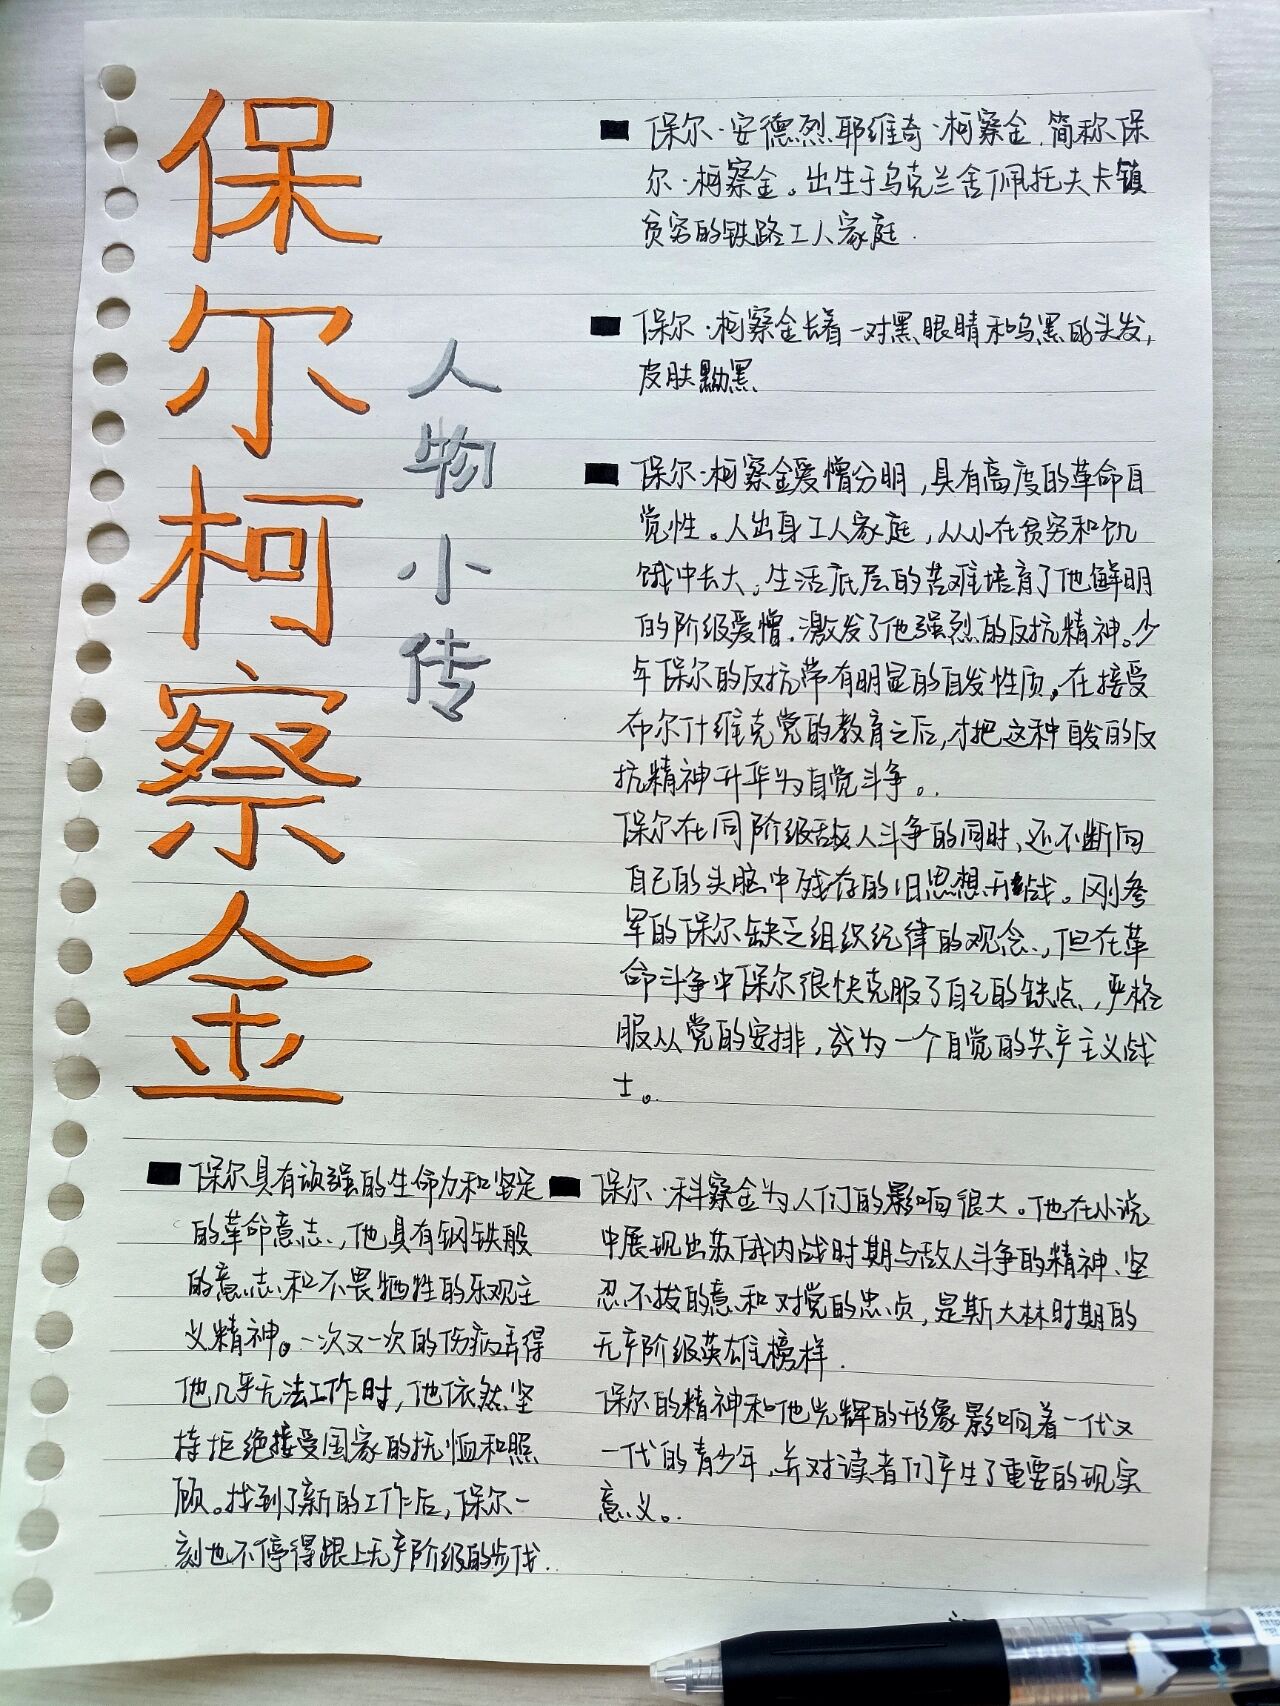 保尔柯察金
人物小传
保尔·安德烈耶维奇·柯察金,简称保
尔·柯察金。出生于乌克兰舍佩托夫卡镇
贫穷的铁路工人家庭.
保尔·柯察金长着一对黑眼睛和乌黑的头发,
皮肤黝黑
保尔·柯察金爱憎分明,具有高度的革命自
觉性。人出身工人家庭,从小在贫穷和饥
饿中长大,生活底层的苦难培育了他鲜明
的阶级爱憎.激发了他强烈的反抗精神。少
年保尔的反抗带有明显的自发性质,在接受
布尔什维克党的教育之后,才把这种自发的反
抗精神升华为自觉斗争。
保尔在同阶级敌人斗争的同时、还不断向
自己的头脑中残存的旧思想开战。刚参
军的保尔缺乏组织纪律的观念,但在革
命斗争中保尔很快克服了自己的缺点,严格
服从党的安排,成为一个自觉的共产主义战
士。
保尔具有顽强的生命力和坚定
的革命意志,他具有钢铁般
的意志和不畏牺牲的乐观主
义精神。一次又一次的伤病弄得
他几乎无法工作时,他依然坚
持拒绝接受国家的抚恤和照
顾。找到了新的工作后,保尔一
刻也不停得跟上无产阶级的步伐.
保尔·科察金为人们的影响很大。他在小说
中展现出苏俄内战时期与敌人斗争的精神、坚
忍不拔的意和对党的忠贞,是斯大林时期的
无产阶级英雄榜样.
保尔的精神和他光辉的形象影响着一代又
一代的青少年,并对读者们产生了重要的现实
意义。